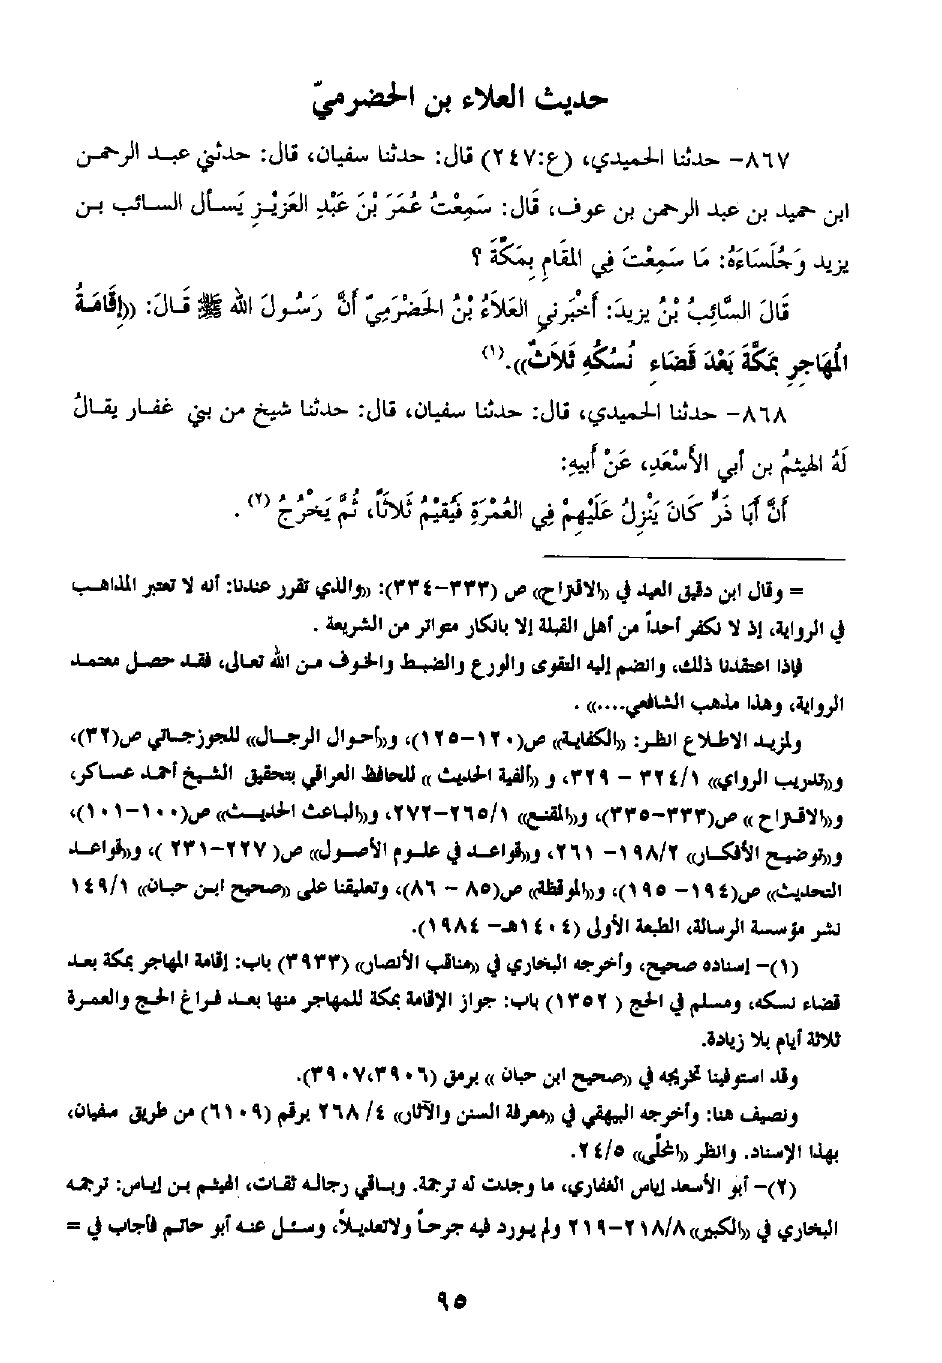 حديث العلاء بن الحضرميّ
٨٦٧- حدثنا الحميدي، (ع:٢٤٧) قال: حدثنا سفيان، قال: حدثني عبد الرحمن
ابن حميد بن عبد الرحمن بن عوف، قَال: سَمِعْتُ عُمَرَ بْنَ عَبْدِ العَزِيْزِ يَسأل السائب بن
يزيد وَجُلَسَاءَهُ: مَا سَمِعْتَ فِي المَقَامِ بِمَكَّةَ ؟
قَالَ السَّائِبُ بْنُ يزِيدَ: أَخْبَرنِي العَلاَءُ بْنُ الحَضْرَمِيّ أَنَّ رَسُولَ الله ﷺ قَالَ: ((إقَامَةُ
المُهَاجِرِ بِمَكَّةَ بَعْدَ قَضَاءِ نُسُكُهِ ثَلاَثٌ)). (١)
٨٦٨- حدثنا الحميدي، قال: حدثنا سفيان، قال: حدثنا شيخ من بني غفار يقالُ
لَهُ الهيثمُ بن أبي الأسْعَدِ، عَنْ أبيهِ:
أَنَّ أَبَا ذَرٍّ كَانَ يَنْزِلُ عَلَيْهِمْ فِي العُمْرَةِ فَيُقيْمُ ثَلاَثاً، ثُمَّ يَخْرُجُ (٢) .
= وقال ابن دقيق العيد في ((الاقتراح)) ص (٣٣٣-٣٣٤): ((والذي تقرر عندنا: أنه لا تعتبر المذاهب
في الرواية، إذ لا نكفر أحداً من أهل القبلة إلا بانكار متواتر من الشريعة .
فإذا اعتقدنا ذلك، وانضم إليه التقوى والورع والضبط والخوف من الله تعالى، فقد حصل معتمد
الرواية، وهذا مذهب الشافعي....)) .
ولمزيد الاطلاع انظر: ((الكفاية)) ص(١٢٠-١٢٥)، و((أحوال الرجال)) للجوزجاني ص(٣٢)،
و((تدريب الرواي)) ٣٢٤/١ - ٣٢٩، و ((ألفية الحديث )) للحافظ العراقي بتحقيق الشيخ أحمد عساكر،
و((الاقتراح )) ص(٣٣٣-٣٣٥)، و((المقنع)) ٢٦٥/١-٢٧٢، و((الباعث الحديث)) ص(١٠٠-١٠١)،
و((توضيح الأفكار)) ١٩٨/٢- ٢٦١، و((قواعد في علوم الأصول)) ص( ٢٢٧-٢٣١ )، و((قواعد
التحديث)) ص(١٩٤- ١٩٥)، و((الموقظة)) ص(٨٥ - ٨٦)، وتعليقنا على ((صحيح ابن حبان)) ١٤٩/١
نشر مؤسسة الرسالة، الطبعة الأولى (١٤٠٤هـ- ١٩٨٤).
(١)- إسناده صحيح، وأخرجه البخاري في ((مناقب الأنصار)) (٣٩٣٣) باب: إقامة المهاجر بمكة بعد
قضاء نسكه، ومسلم في الحج ( ١٣٥٢) باب: جواز الإقامة بمكة للمهاجر منها بعد فراغ الحج والعمرة
ثلاثة أيام بلا زيادة.
وقد استوفينا تخريجه في ((صحيح ابن حبان )) برمق (٣٩٠٧،٣٩٠٦).
ونصيف هنا: وأخرجه البيهقي في ((معرفة السنن والآثار)) ٤/ ٢٦٨ برقم (٦١٠٩) من طريق سفيان،
بهذا الإسناد. وانظر ((المحلّى)) ٢٤/٥.
(٢)- أبو الأسعد إياس الغفاري، ما وجدت له ترجمة. وباقي رجاله ثقات، الهيثم بن إياس: ترجمه
البخاري في ((الكبير)) ٢١٨/٨-٢١٩ ولم يورد فيه جرحاً ولاتعديلاً، وسئل عنه أبو حاتم فأجاب في =
٩٥